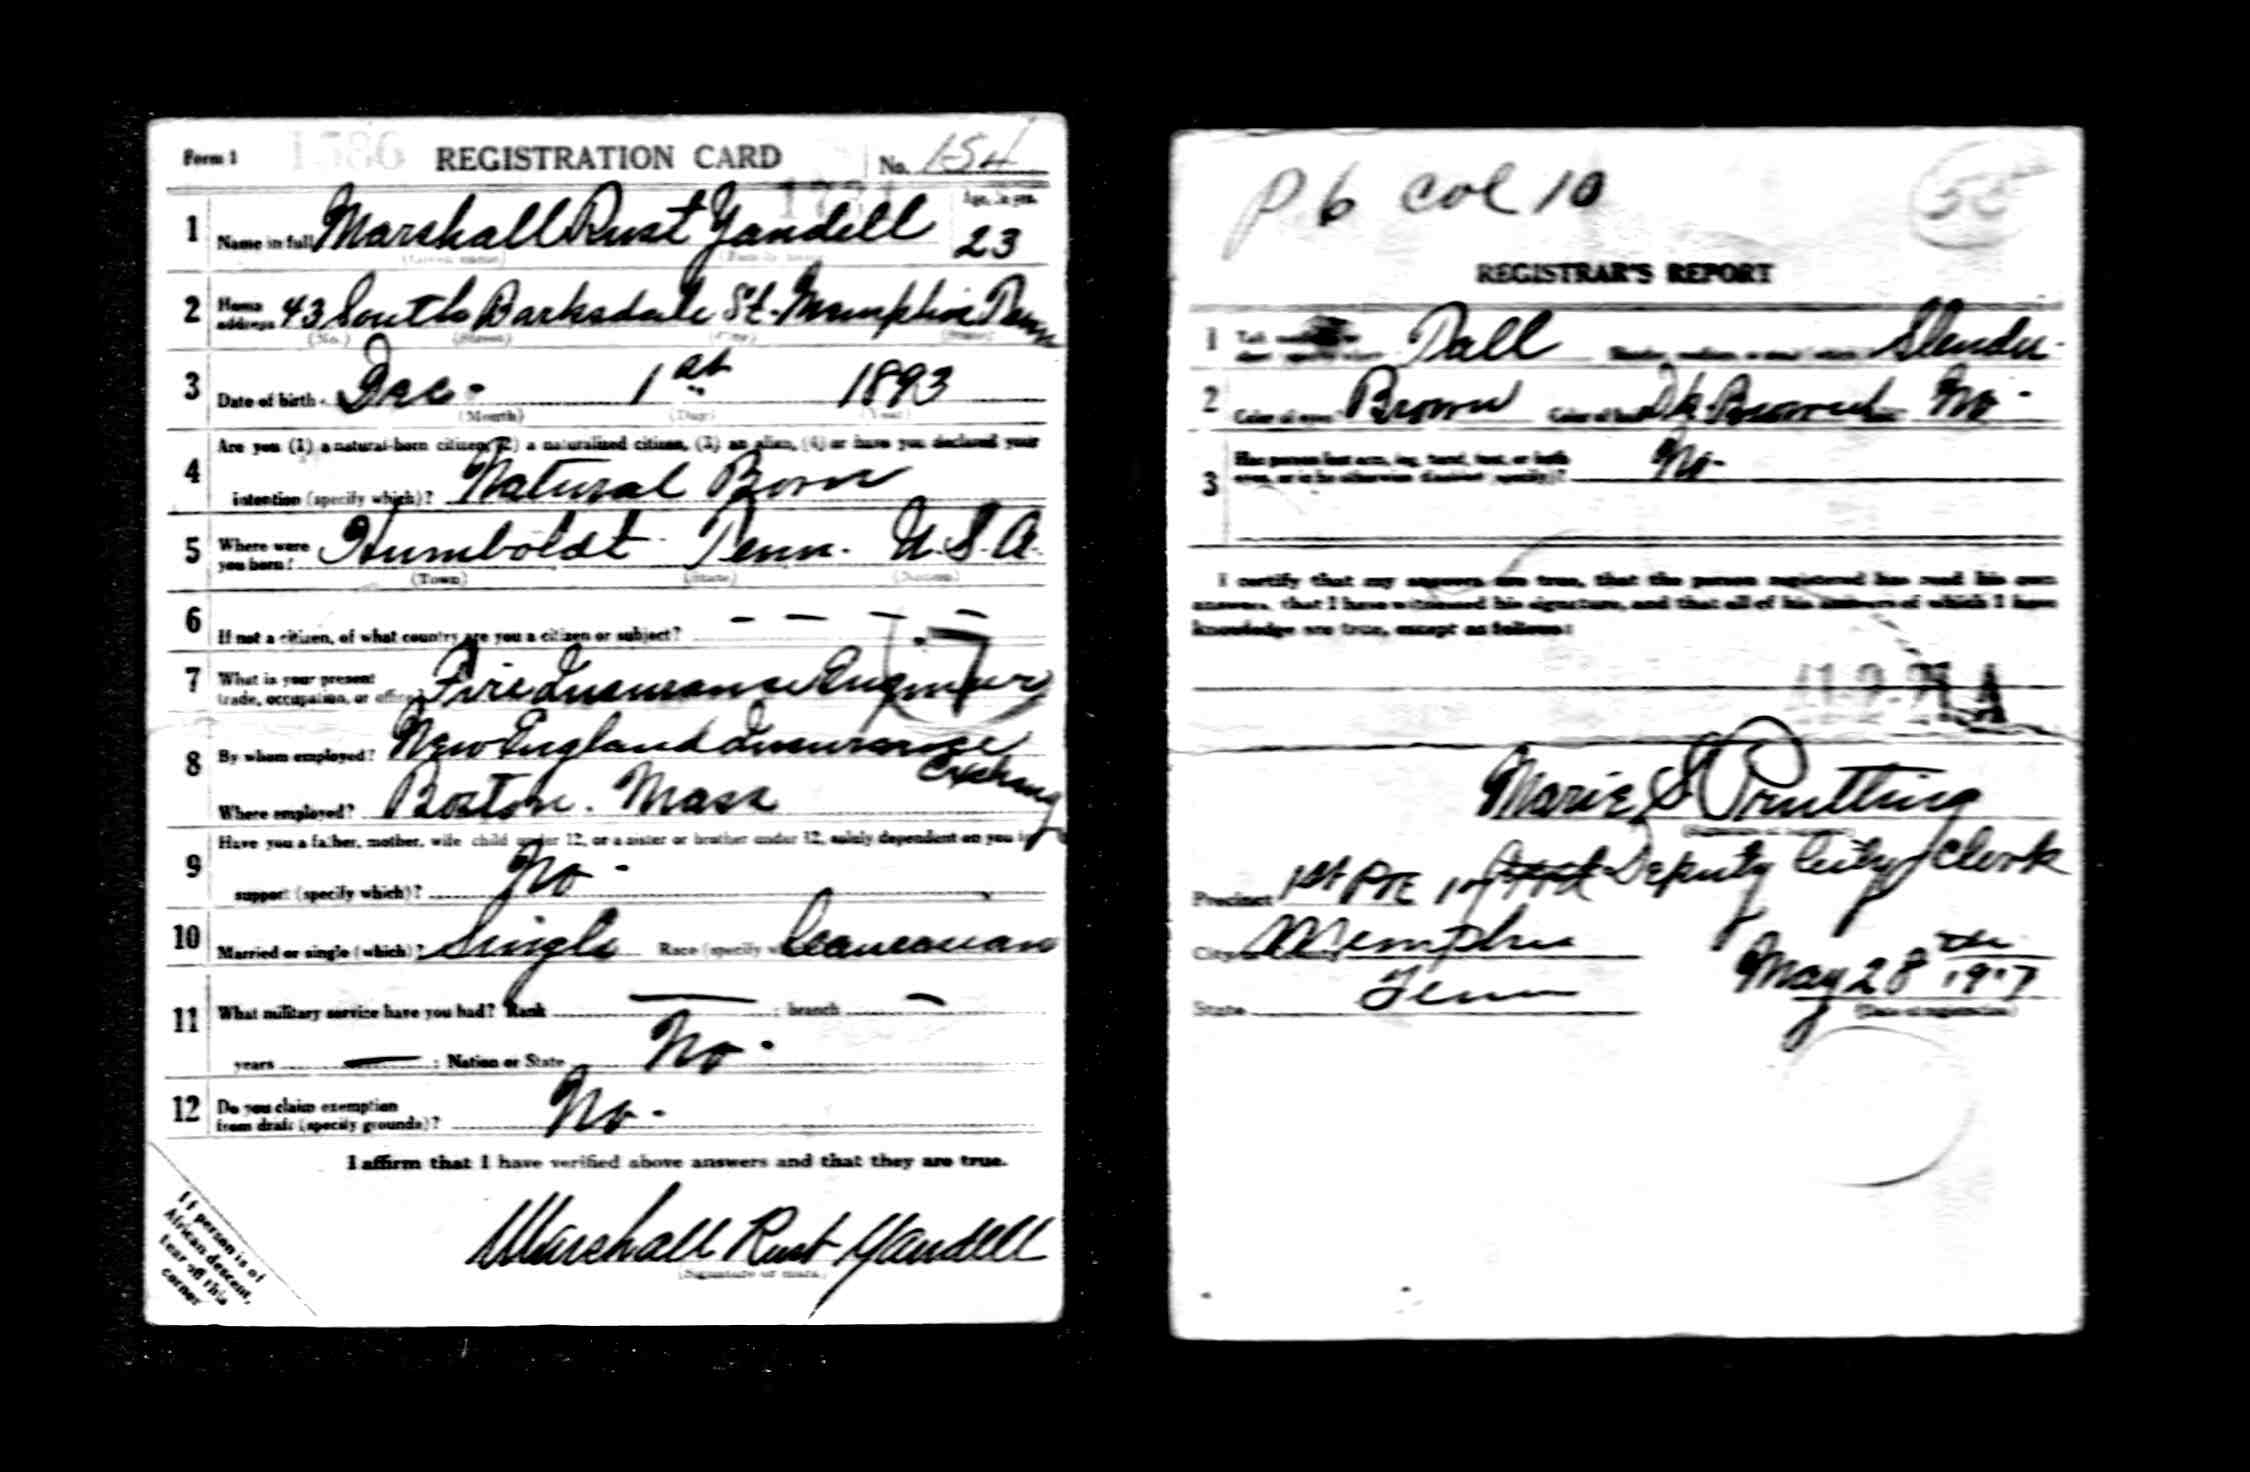 Form 1 1586 REGISTRATION CARD No. 154
1 Name in full Marshall Rust Yandell Age, in yrs. 23
(Given name) (Family name)
2 Home address 43 South Barksdale St. Memphis Tenn
(No.) (Street) (City) (State)
3 Date of birth Dec. 1st 1893
(Month) (Day) (Year)
Are you (1) a natural-born citizen, (2) a naturalized citizen, (3) an alien, (4) or have you declared your
4 intention (specify which)? Natural Born
5 Where were you born? Humboldt Tenn. U.S.A.
(Town) (State) (Nation)
6 If not a citizen, of what country are you a citizen or subject? - - - -
7 What is your present trade, occupation, or office? Fire Insurance Engineer
8 By whom employed? New England Insurance Exchange
Where employed? Boston. Mass
Have you a father, mother, wife child under 12, or a sister or brother under 12, solely dependent on you for
9 support (specify which)? No -
10 Married or single (which)? Single Race (specify which)? Caucasian
11 What military service have you had? Rank — ; branch —
years — ; Nation or State No -
12 Do you claim exemption from draft (specify grounds)? No -
I affirm that I have verified above answers and that they are true.
Marshall Rust Yandell
(Signature or mark)
If person is of
African descent,
tear off this
corner
P 6 Col 10
REGISTRAR'S REPORT
1 Tall Slender
2 Color of eyes Brown Color of hair Dk Brown No -
3 Has person lost arm, leg, hand, foot, or both eyes, or is he otherwise disabled (specify)? No -
I certify that my answers are true, that the person registered has read his own
answers, that I have witnessed his signature, and that all of his answers of which I have
knowledge are true, except as follows:
Marie S
Precinct 1st Pre Deputy City Clerk
City Memphis
State Tenn May 28th 1917
(Date of registration)